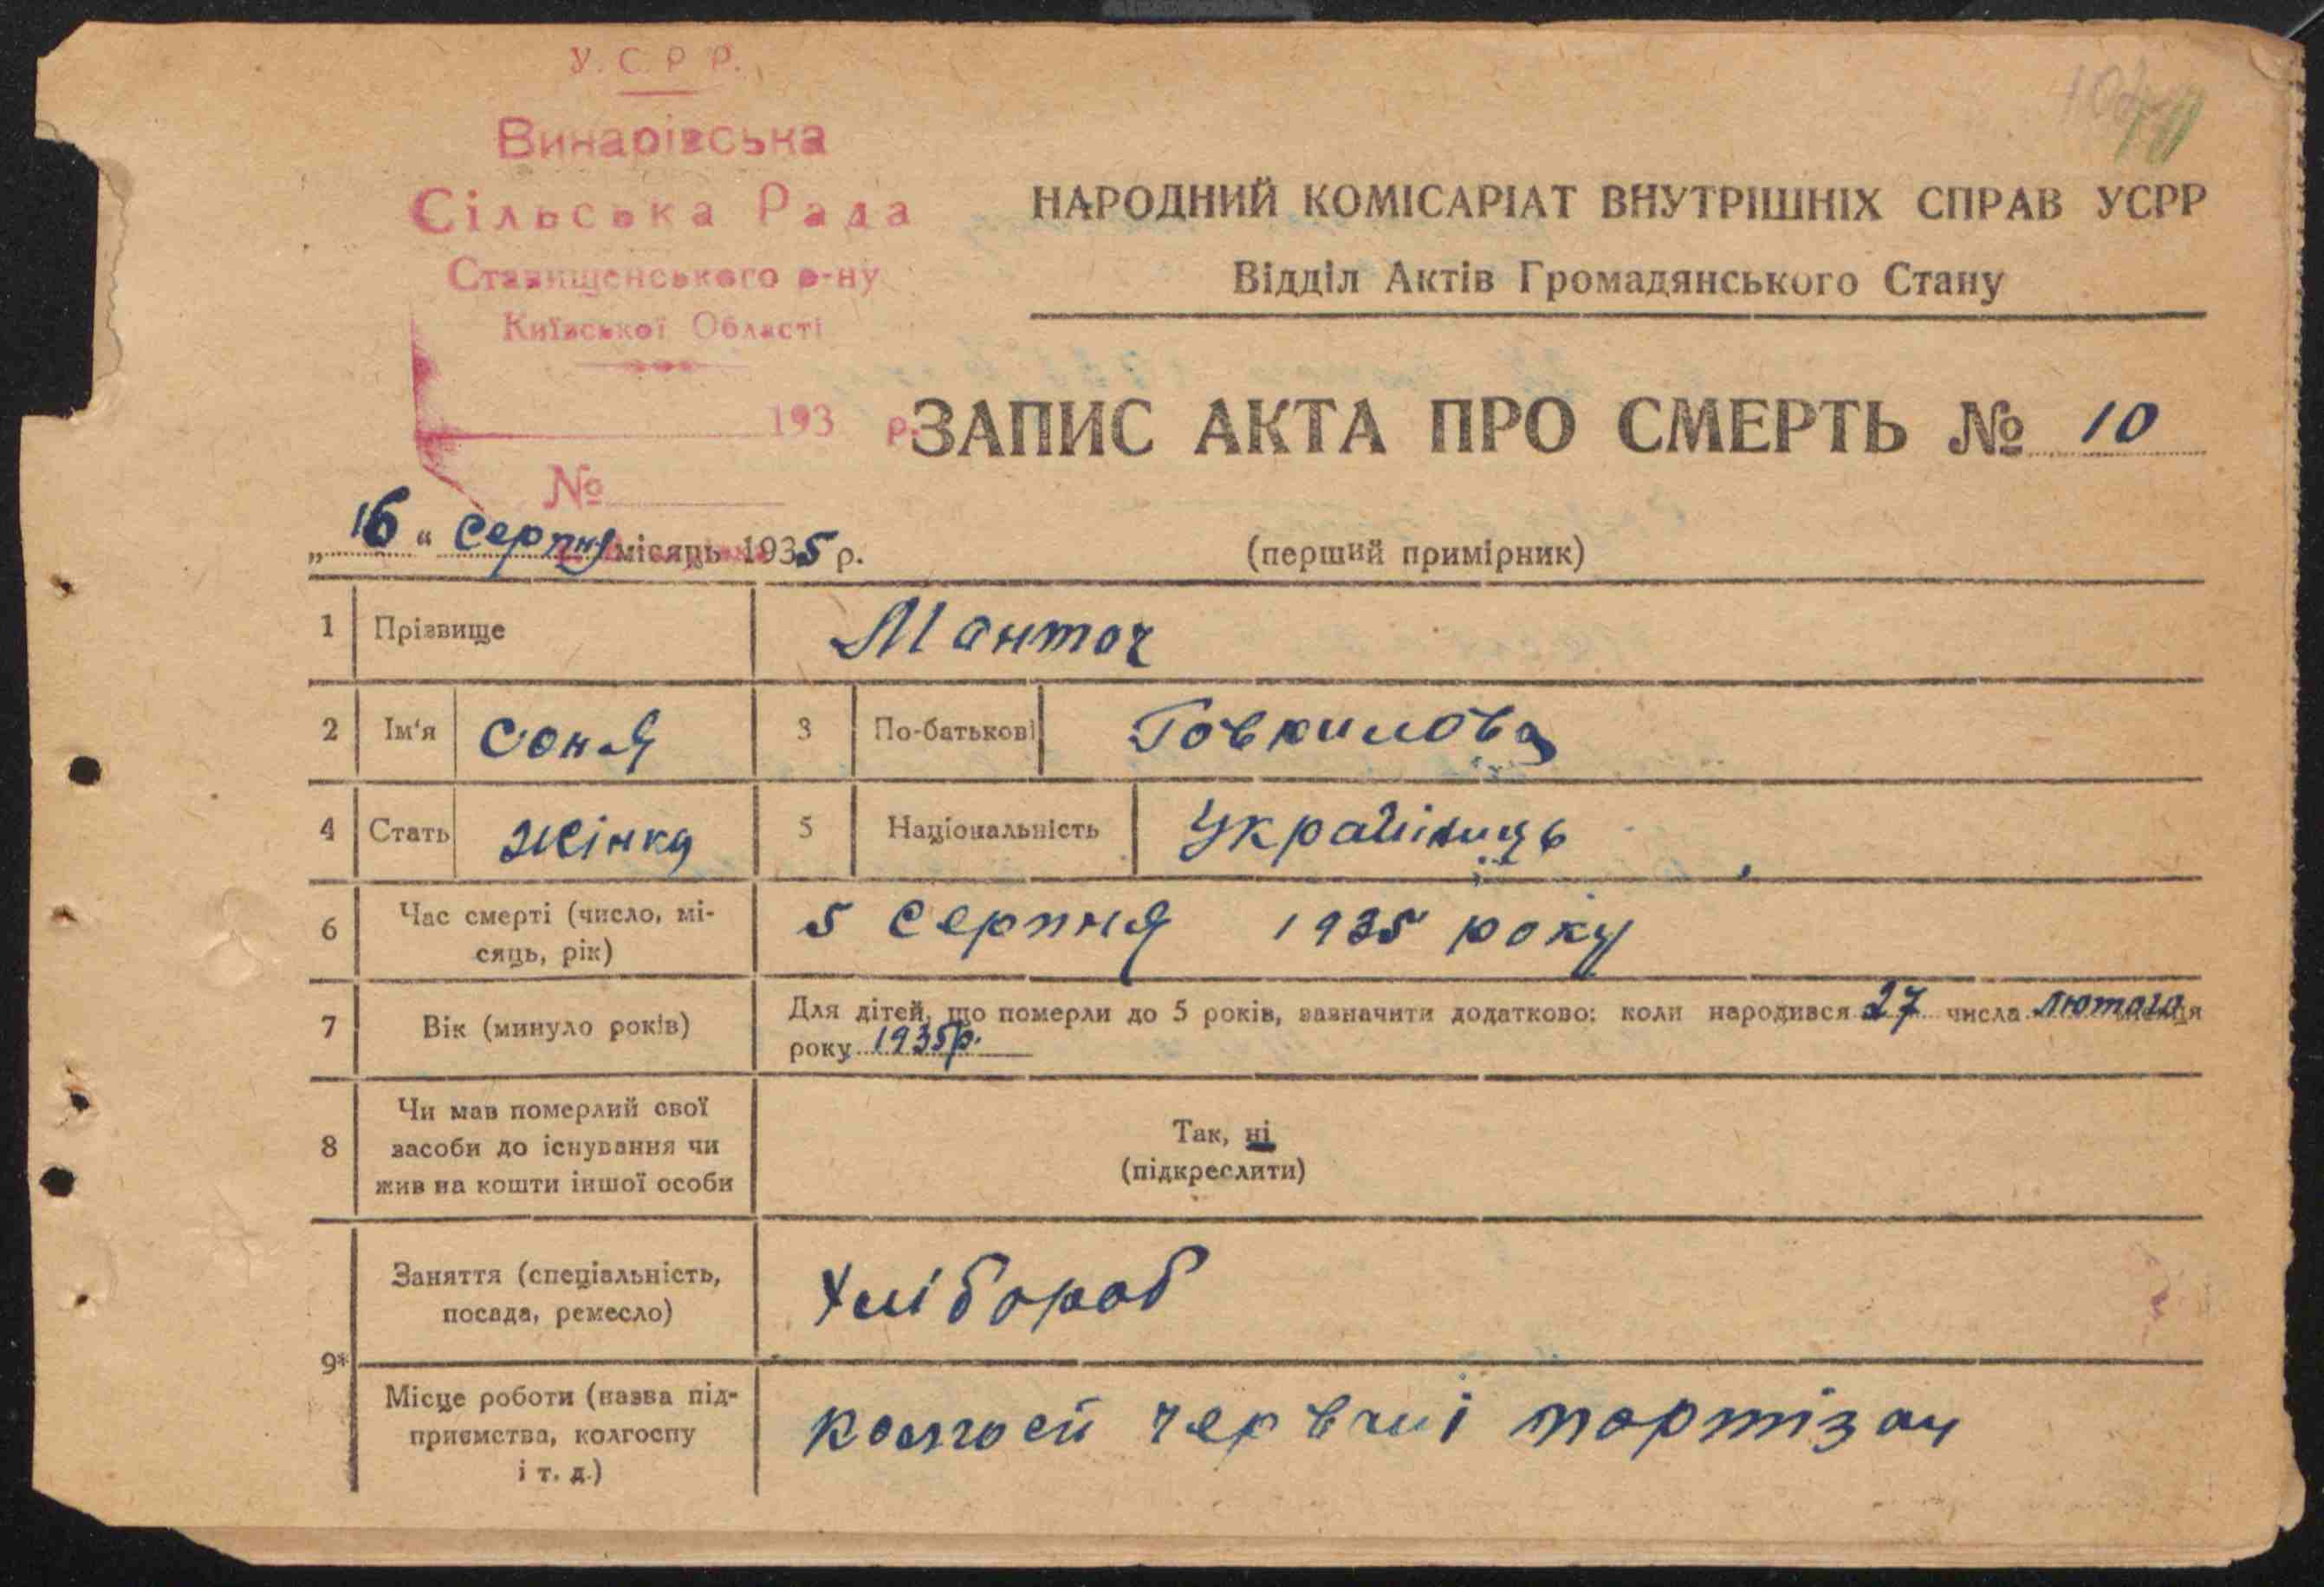 У.С.Р.Р.
Винарівська
Сільська Рада
Ставищенського р-ну
Київської Області
193 р.
№
НАРОДНИЙ КОМІСАРІАТ ВНУТРІШНІХ СПРАВ УСРР
Відділ Актів Громадянського Стану
ЗАПИС АКТА ПРО СМЕРТЬ № 10
„16“ Серпня місяць 1935 р.
(перший примірник)
1 Прізвище Мантач
2 Ім'я Соня 3 По-батькові
4 Стать Жінка 5 Національність Українець
6 Час смерті (число, мі-
сяць, рік) 5 Серпня 1935 року
7 Вік (минуло років) Для дітей, що померли до 5 років, зазначити додатково: коли народився 27 числа лютого
року 1935р.
8 Чи мав померлий свої
засоби до існування чи
жив на кошти іншої особи
Так, ні
(підкреслити)
9* Заняття (спеціальність,
посада, ремесло) Хлібороб
Місце роботи (назва під-
приємства, колгоспу
і т. д.) колгосп червчні партізан